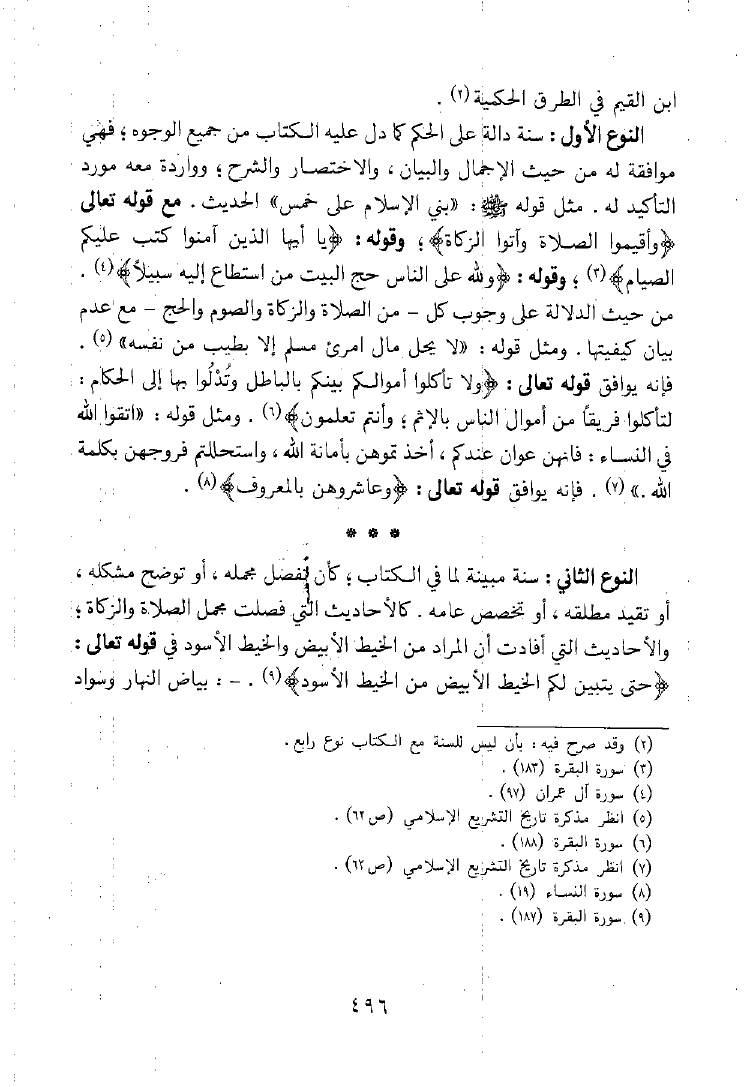 ابن القيم في الطرق الحكمية (٢) .
النوع الأول : سنة دالة على الحكم كما دل عليه الكتاب من جميع الوجوه ؛ فهي
موافقة له من حيث الإجمال والبيان ، والاختصار والشرح ؛ وواردة معه مورد
التأكيد له . مثل قوله ﷺ : «بني الإسلام على خمس» الحديث . مع قوله تعالى
﴿وأقيموا الصلاة وآتوا الزكاة﴾ ؛ وقوله : ﴿يا أيها الذين آمنوا كتب عليكم
الصيام﴾(٣) ؛ وقوله : ﴿ولله على الناس حج البيت من استطاع إليه سبيلاً﴾(٤) .
من حيث الدلالة على وجوب كل – من الصلاة والزكاة والصوم والحج – مع عدم
بيان كيفيتها . ومثل قوله : «لا يحل مال امرئ مسلم إلا بطيب من نفسه» (٥) .
فإنه يوافق قوله تعالى : ﴿ولا تأكلوا أموالكم بينكم بالباطل وتُدْلُوا بها إلى الحكام :
لتأكلوا فريقاً من أموال الناس بالإثم ؛ وأنتم تعلمون﴾(٦) . ومثل قوله : «اتقوا الله
في النساء : فانهن عوان عندكم ، أخذ تموهن بأمانة الله ، واستحللتم فروجهن بكلمة
الله .» (٧) . فإنه يوافق قوله تعالى : ﴿وعاشروهن بالمعروف﴾(٨) .
* * *
النوع الثاني : سنة مبينة لما في الكتاب ؛ كأن تُفصل مجمله ، أو توضح مشكله ،
أو تقيد مطلقه ، أو تخصص عامه . كالأحاديث التي فصلت مجمل الصلاة والزكاة ؛
والأحاديث التي أفادت أن المراد من الخيط الأبيض والخيط الأسود في قوله تعالى :
﴿حتى يتبين لكم الخيط الأبيض من الخيط الأسود﴾(٩) . – : بياض النهار وسواد
(٢) وقد صرح فيه : بأن ليس للسنة مع الكتاب نوع رابع .
(٣) سورة البقرة (١٨٣) .
(٤) سورة آل عمران (٩٧) .
(٥) انظر مذكرة تاريخ التشريع الإسلامي (ص٦٢) .
(٦) سورة البقرة (١٨٨) .
(٧) انظر مذكرة تاريخ التشريع الإسلامي (ص٦٢) .
(٨) سورة النساء (١٩) .
(٩) سورة البقرة (١٨٧) .
٤٩٦